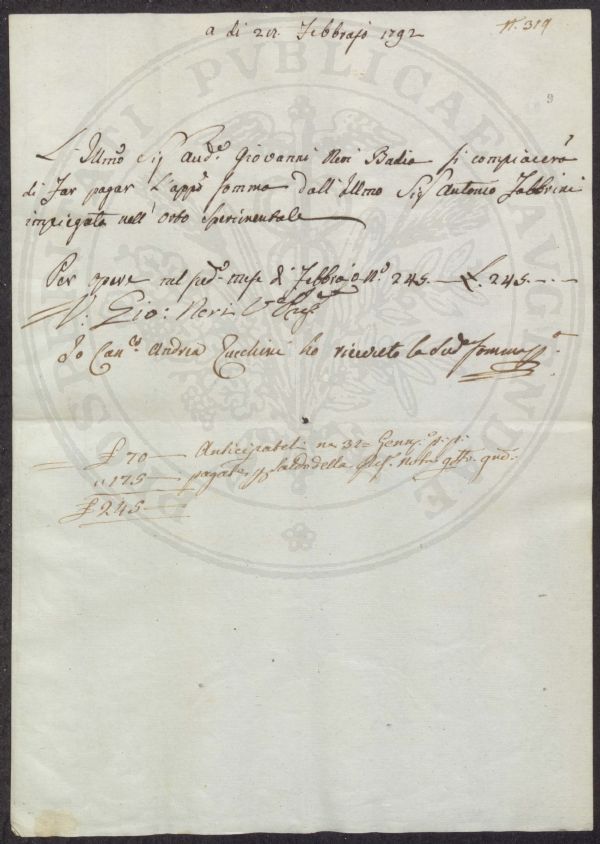 N. 319
a di 27 Febbrajo 1792
L'Illmo Sig Aud.e Giovanni Neri Badia si compiacerà
di far pagar l'appa somma dall'Illmo Sig Antonio Fabbrini
impiegata nell'Orto Sperimentale
Per opere nel sud.o mese di Febbrajo N.o 245. — £. 245. — . —
V. Gio: Neri
Io Can.co Andrea Zucchini ho ricevuto la Sud.a somma
£ 70 — Anticipateli
" 175 — pagate p saldo della
£ 245 —
PUBLICAE